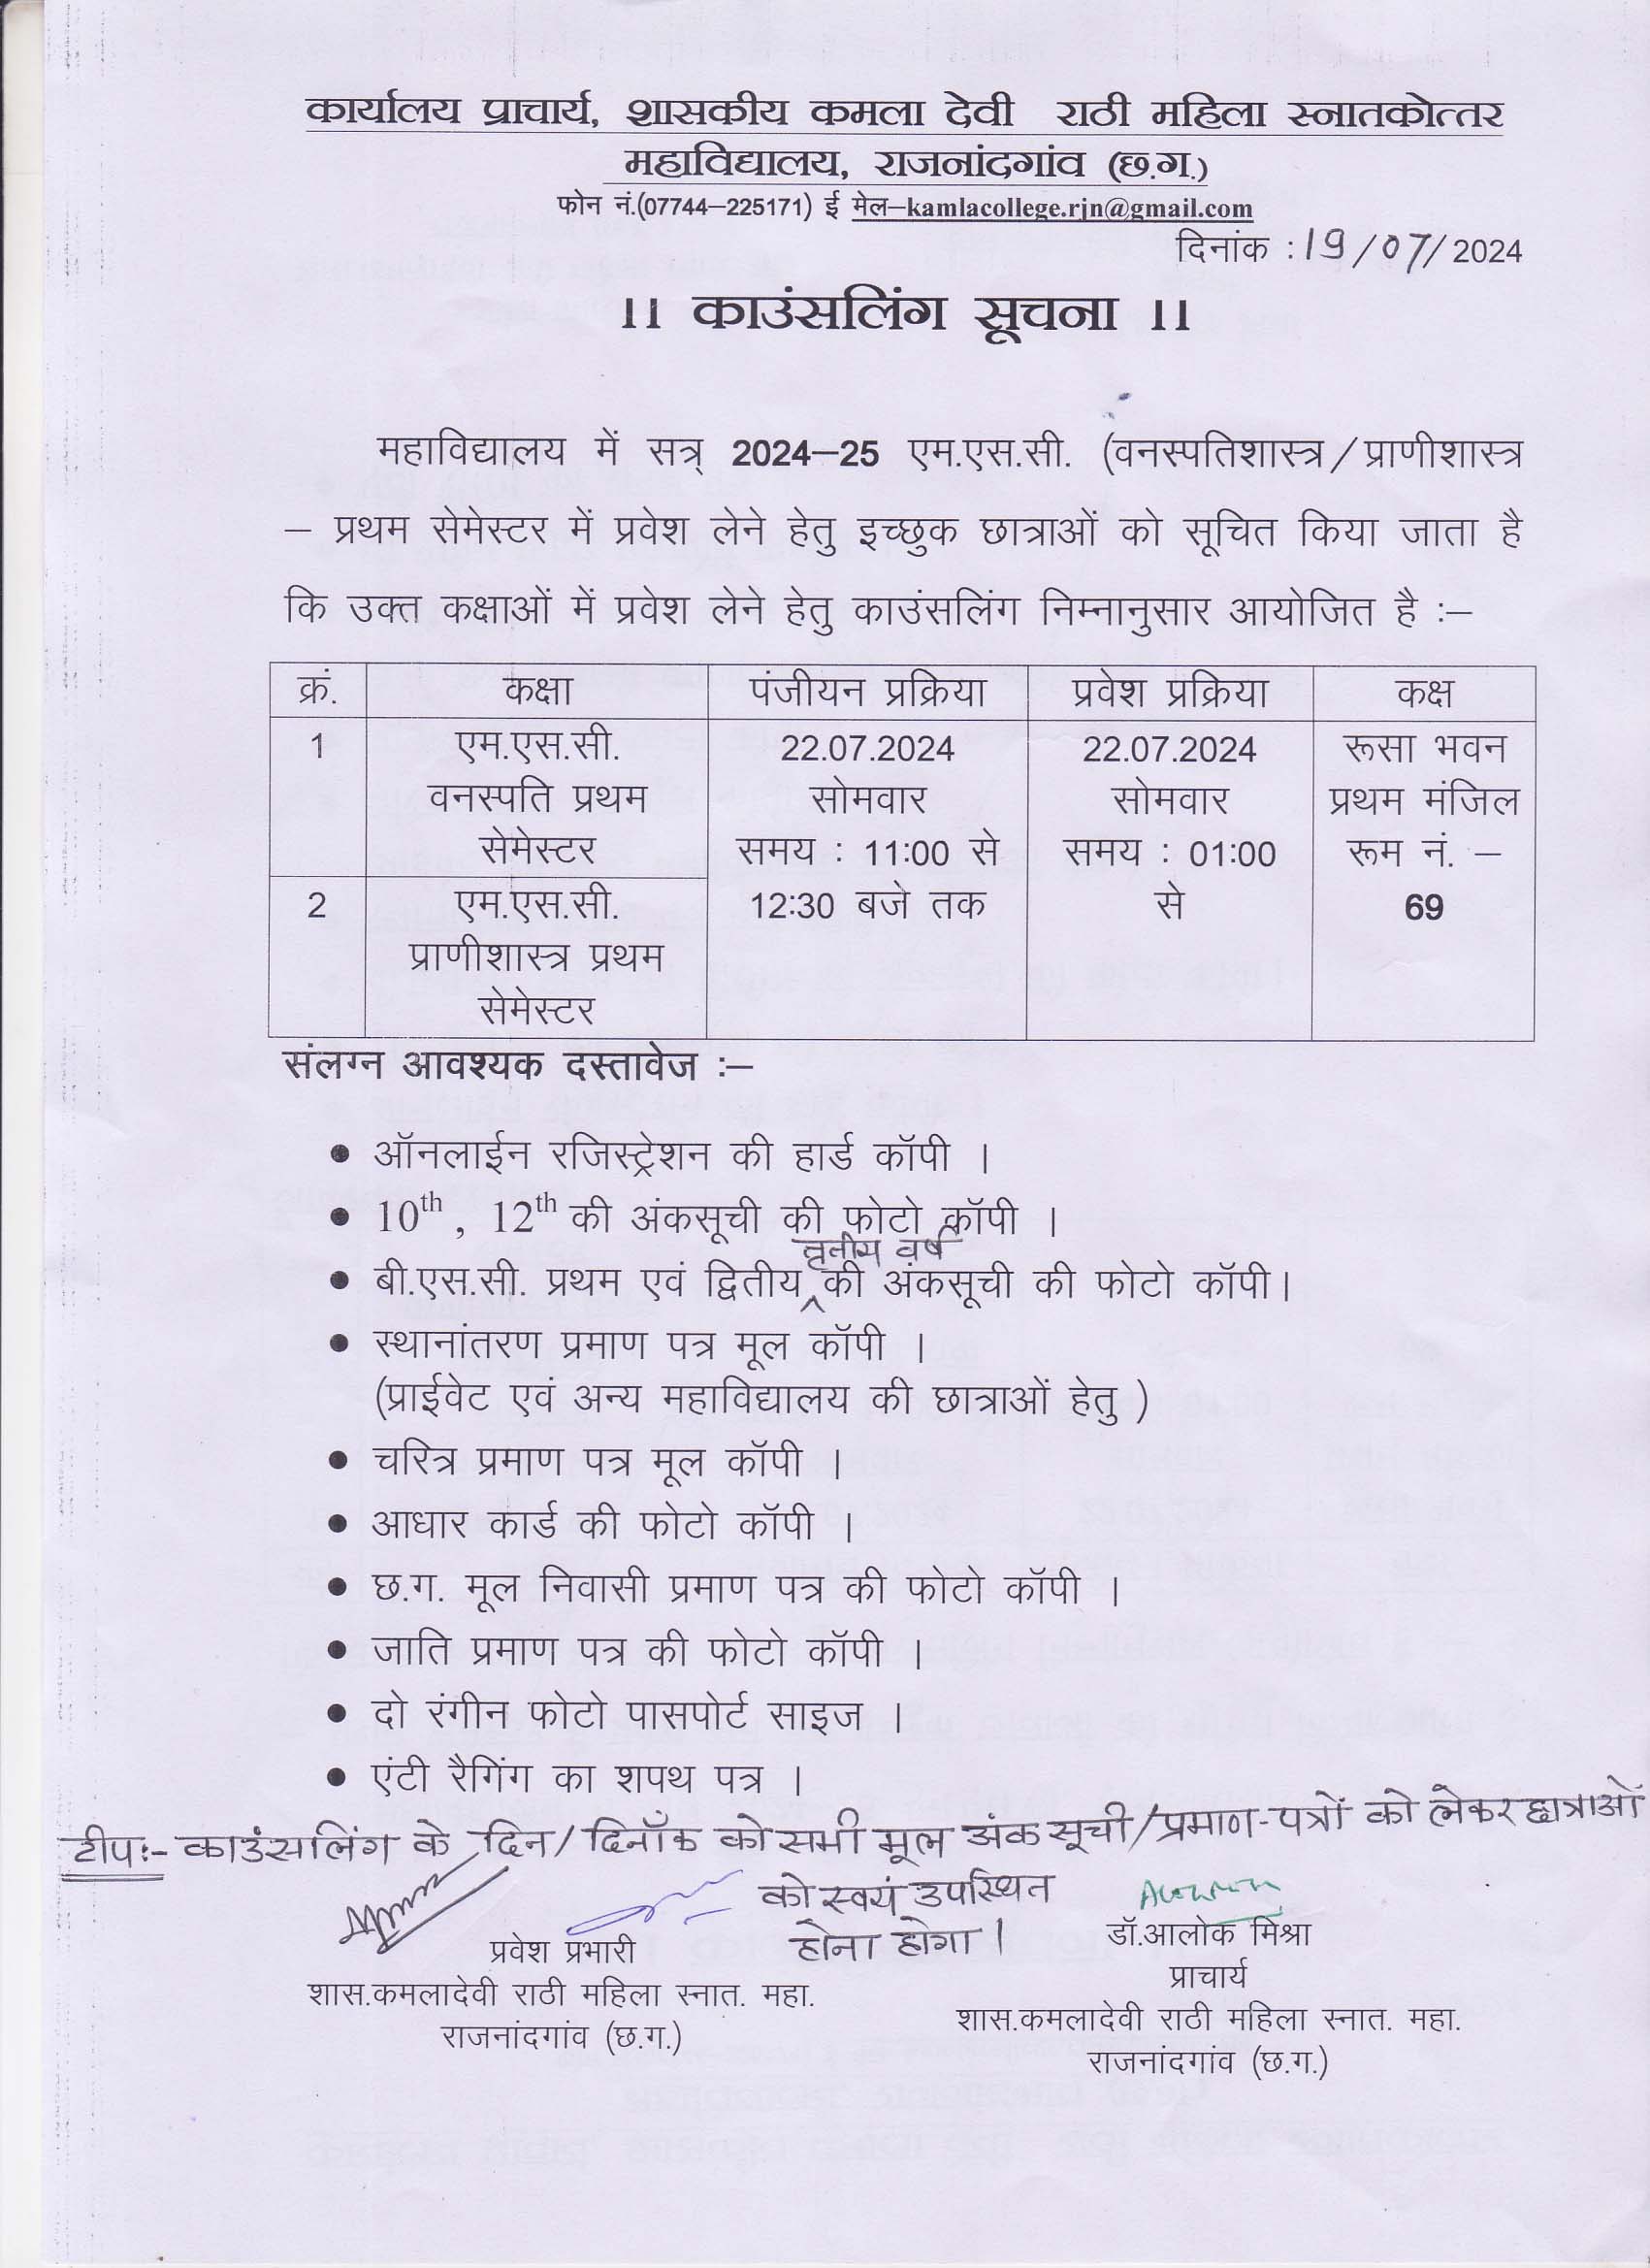 कार्यालय प्राचार्य, शासकीय कमला देवी राठी महिला स्नातकोत्तर
महाविद्यालय, राजनांदगांव (छ.ग.)
फोन नं.(07744–225171) ई मेल–kamlacollege.rjn@gmail.com
दिनांक : 19/07/2024
।। काउंसलिंग सूचना ।।
महाविद्यालय में सत्र् 2024–25 एम.एस.सी. (वनस्पतिशास्त्र/प्राणीशास्त्र
– प्रथम सेमेस्टर में प्रवेश लेने हेतु इच्छुक छात्राओं को सूचित किया जाता है
कि उक्त कक्षाओं में प्रवेश लेने हेतु काउंसलिंग निम्नानुसार आयोजित है :–
क्रं. कक्षा पंजीयन प्रक्रिया प्रवेश प्रक्रिया कक्ष
1 एम.एस.सी. 22.07.2024 22.07.2024 रूसा भवन
वनस्पति प्रथम सोमवार सोमवार प्रथम मंजिल
सेमेस्टर समय : 11:00 से समय : 01:00 रूम नं. –
2 एम.एस.सी. 12:30 बजे तक से 69
प्राणीशास्त्र प्रथम
सेमेस्टर
संलग्न आवश्यक दस्तावेज :–
• ऑनलाईन रजिस्ट्रेशन की हार्ड कॉपी ।
• 10th , 12th की अंकसूची की फोटो कॉपी ।
तृतीय वर्ष
• बी.एस.सी. प्रथम एवं द्वितीय की अंकसूची की फोटो कॉपी।
• स्थानांतरण प्रमाण पत्र मूल कॉपी ।
(प्राईवेट एवं अन्य महाविद्यालय की छात्राओं हेतु )
• चरित्र प्रमाण पत्र मूल कॉपी ।
• आधार कार्ड की फोटो कॉपी ।
• छ.ग. मूल निवासी प्रमाण पत्र की फोटो कॉपी ।
• जाति प्रमाण पत्र की फोटो कॉपी ।
• दो रंगीन फोटो पासपोर्ट साइज ।
• एंटी रैगिंग का शपथ पत्र ।
टीपः- काउंसलिंग के दिन/दिनाँक को सभी मूल अंकसूची/प्रमाण-पत्रों को लेकर छात्राओं
को स्वयं उपस्थित
होना होगा।
प्रवेश प्रभारी
शास.कमलादेवी राठी महिला स्नात. महा.
राजनांदगांव (छ.ग.)
डॉ.आलोक मिश्रा
प्राचार्य
शास.कमलादेवी राठी महिला स्नात. महा.
राजनांदगांव (छ.ग.)